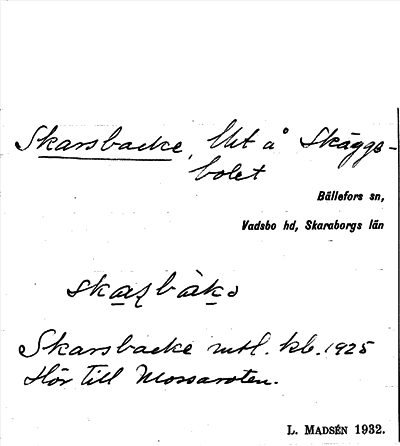 Skarsbacke, Ut å Skäggs-
bolet
Bällefors sn,
Vadsbo hd, Skaraborgs län
Skarsbacke mtl. kb. 1925
Hör till Mossaroten.
L. MADSÉN 1932.